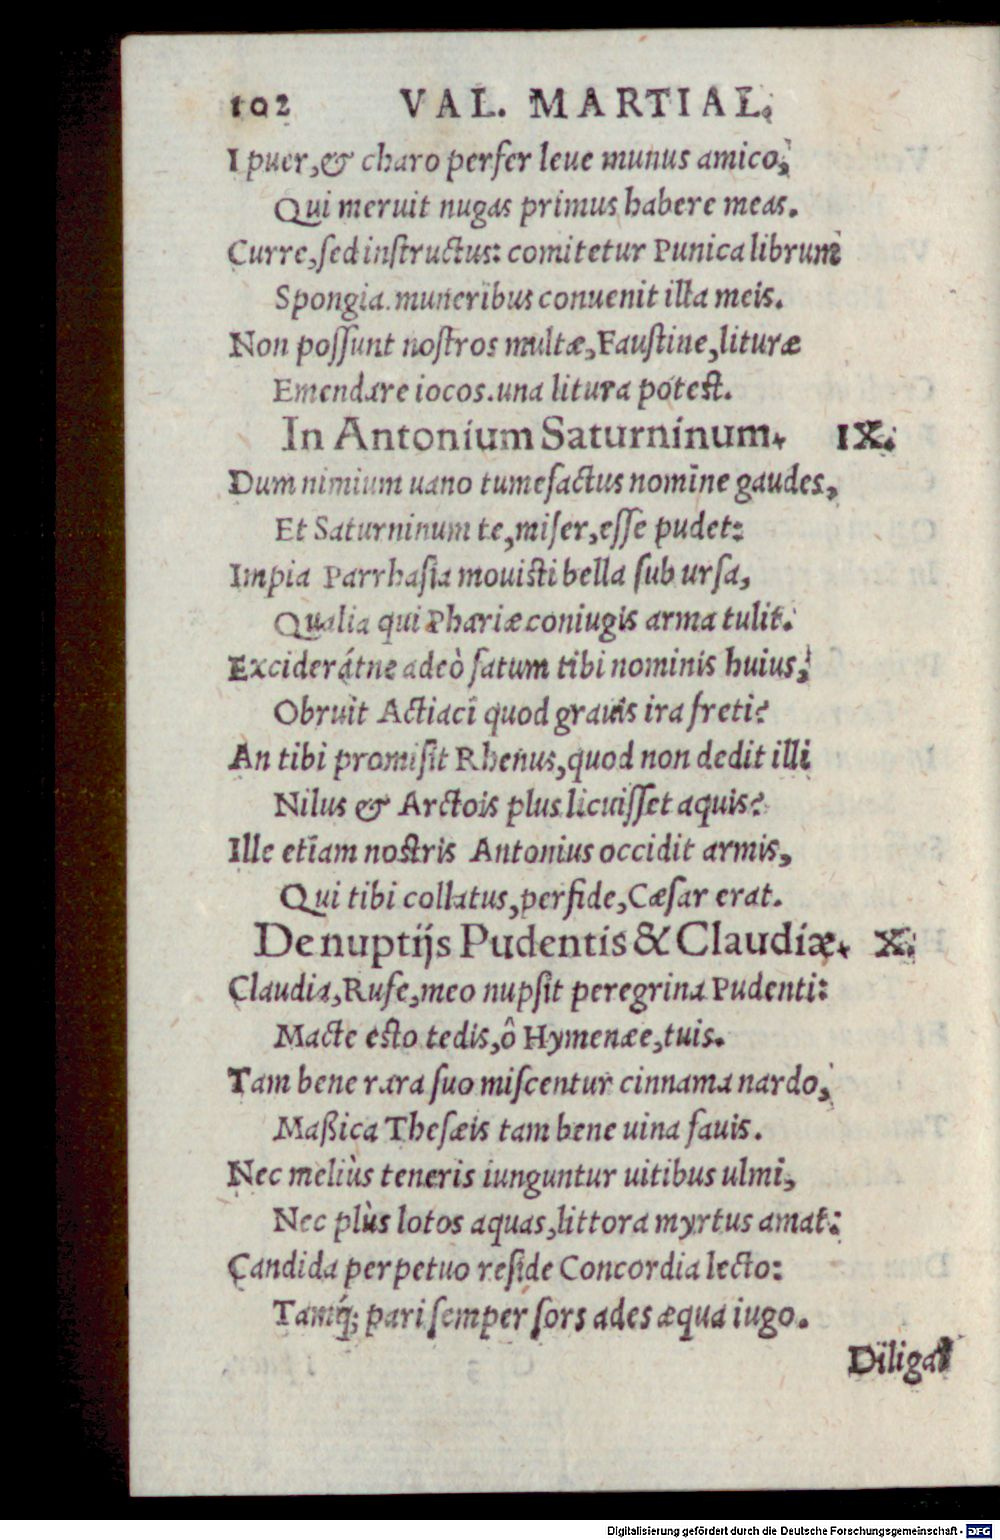 102 VAL. MARTIAL.
I puer, & charo perfer leue munus amico,
Qui meruit nugas primus habere meas.
Curre, sed instructus: comitetur Punica librum
Spongia. muneribus conuenit illa meis.
Non possunt nostros multæ, Faustine, lituræ
Emendare iocos. una litura potest.
In Antonium Saturninum. IX.
Dum nimium uano tumefactus nomine gaudes,
Et Saturninum te, miser, esse pudet:
Impia Parrhasia mouisti bella sub ursa,
Qualia qui Phariæ coniugis arma tulit.
Exciderátne adeò fatum tibi nominis huius,
Obruit Actiaci quod grauis ira freti?
An tibi promisit Rhenus, quod non dedit illi
Nilus & Arctois plus licuisset aquis?
Ille etiam nostris Antonius occidit armis,
Qui tibi collatus, perfide, Cæsar erat.
De nuptijs Pudentis & Claudiæ. X.
Claudia, Rufe, meo nupsit peregrina Pudenti:
Macte esto tedis, ô Hymenæe, tuis.
Tam bene rara suo miscentur cinnama nardo,
Maßica Thesæis tam bene uina fauis.
Nec meliùs teneris iunguntur uitibus ulmi,
Nec plùs lotos aquas, littora myrtus amat:
Candida perpetuo reside Concordia lecto:
Tamq́; pari semper sors ades æqua iugo.
Diligat
Digitalisierung gefördert durch die Deutsche Forschungsgemeinschaft - DFG